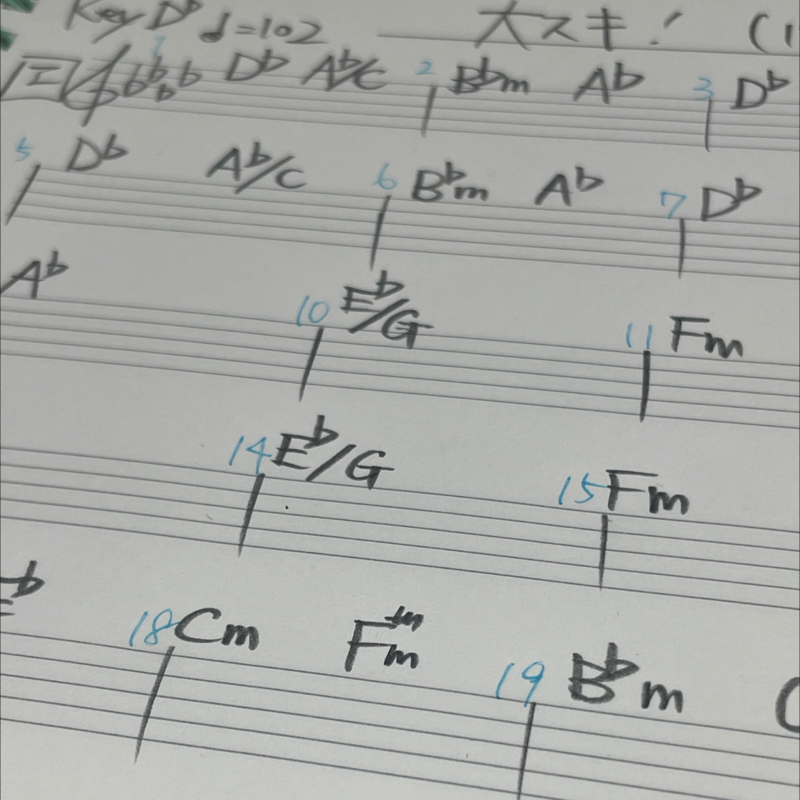 Key D♭ ♩=102 大スキ! (1
1 D♭ A♭/C 2 B♭m A♭ 3 D♭
5 D♭ A♭/C 6 B♭m A♭ 7 D♭
A♭ 10 E♭/G 11 Fm
14 E♭/G 15 Fm
18 Cm Fm 19 B♭m